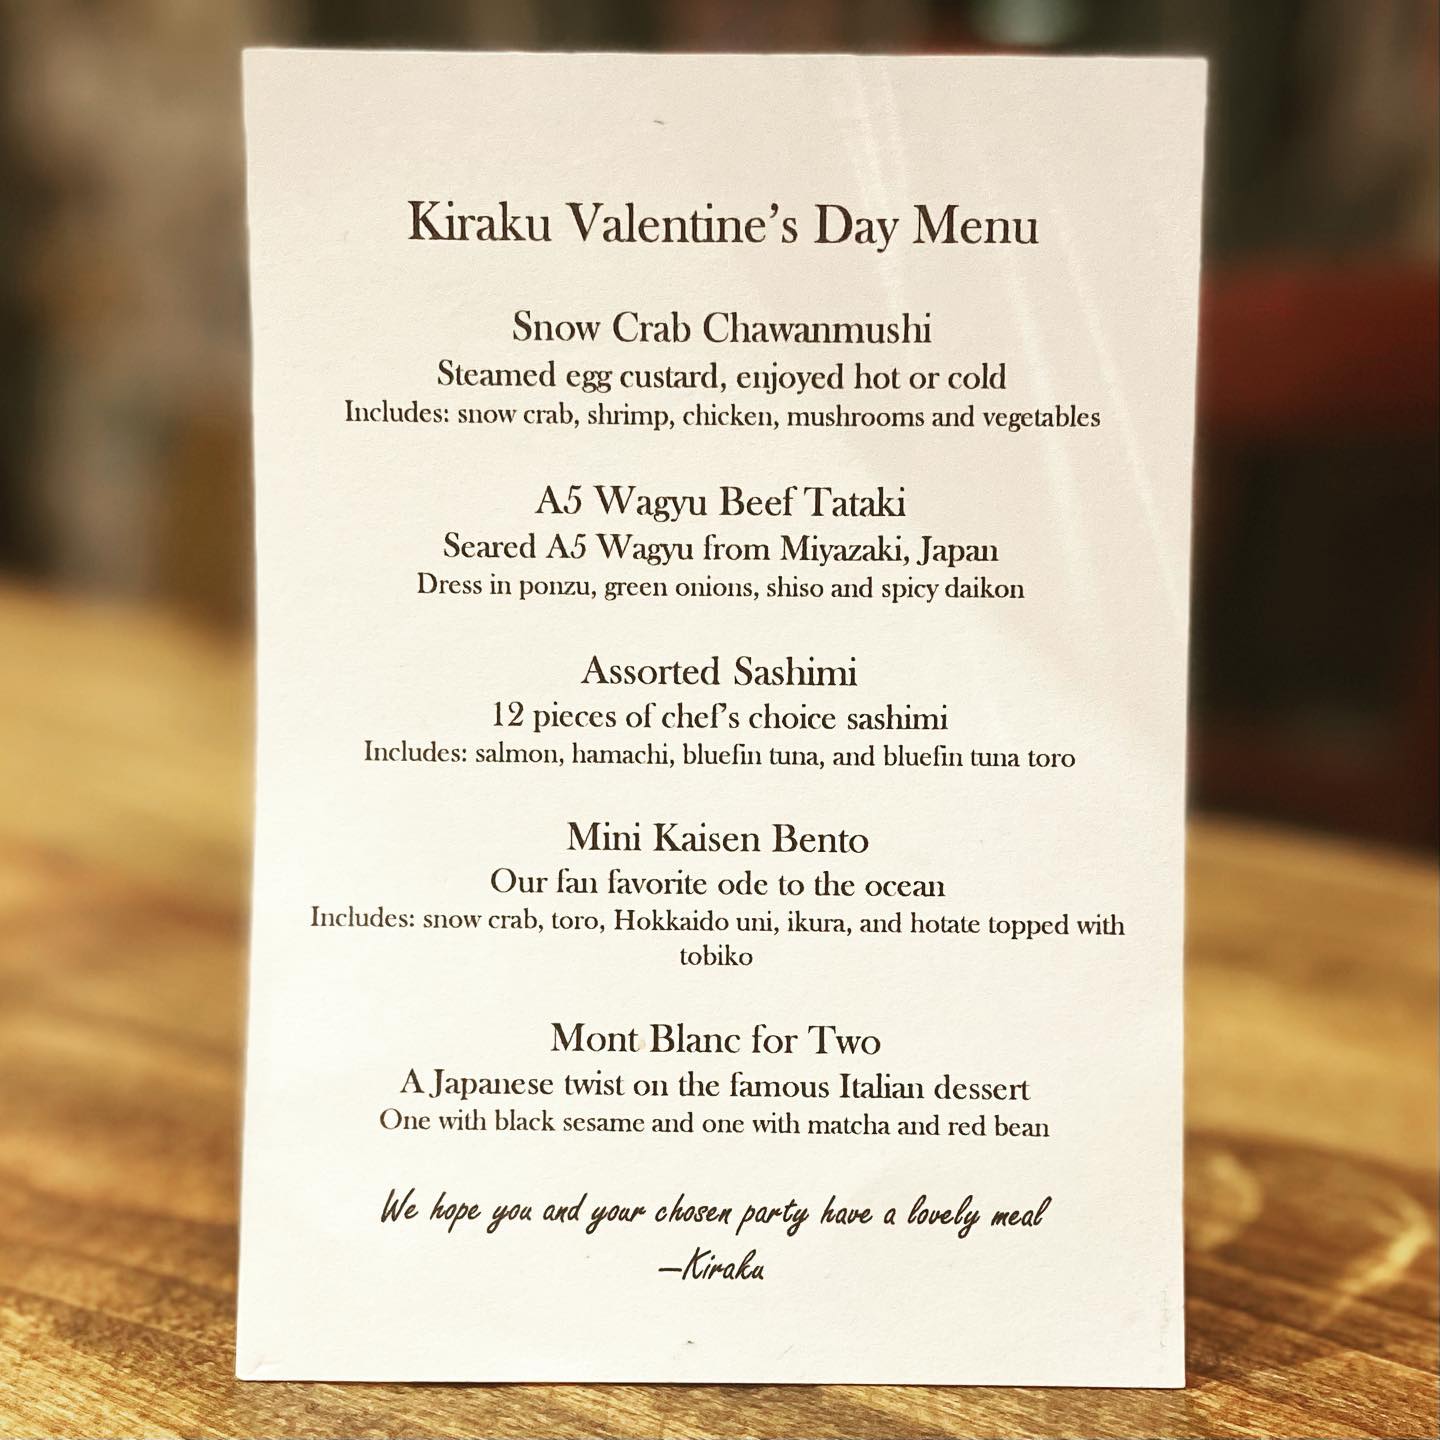 Kiraku Valentine’s Day Menu
Snow Crab Chawanmushi
Steamed egg custard, enjoyed hot or cold
Includes: snow crab, shrimp, chicken, mushrooms and vegetables
A5 Wagyu Beef Tataki
Seared A5 Wagyu from Miyazaki, Japan
Dress in ponzu, green onions, shiso and spicy daikon
Assorted Sashimi
12 pieces of chef’s choice sashimi
Includes: salmon, hamachi, bluefin tuna, and bluefin tuna toro
Mini Kaisen Bento
Our fan favorite ode to the ocean
Includes: snow crab, toro, Hokkaido uni, ikura, and hotate topped with
tobiko
Mont Blanc for Two
A Japanese twist on the famous Italian dessert
One with black sesame and one with matcha and red bean
We hope you and your chosen party have a lovely meal
—Kiraku